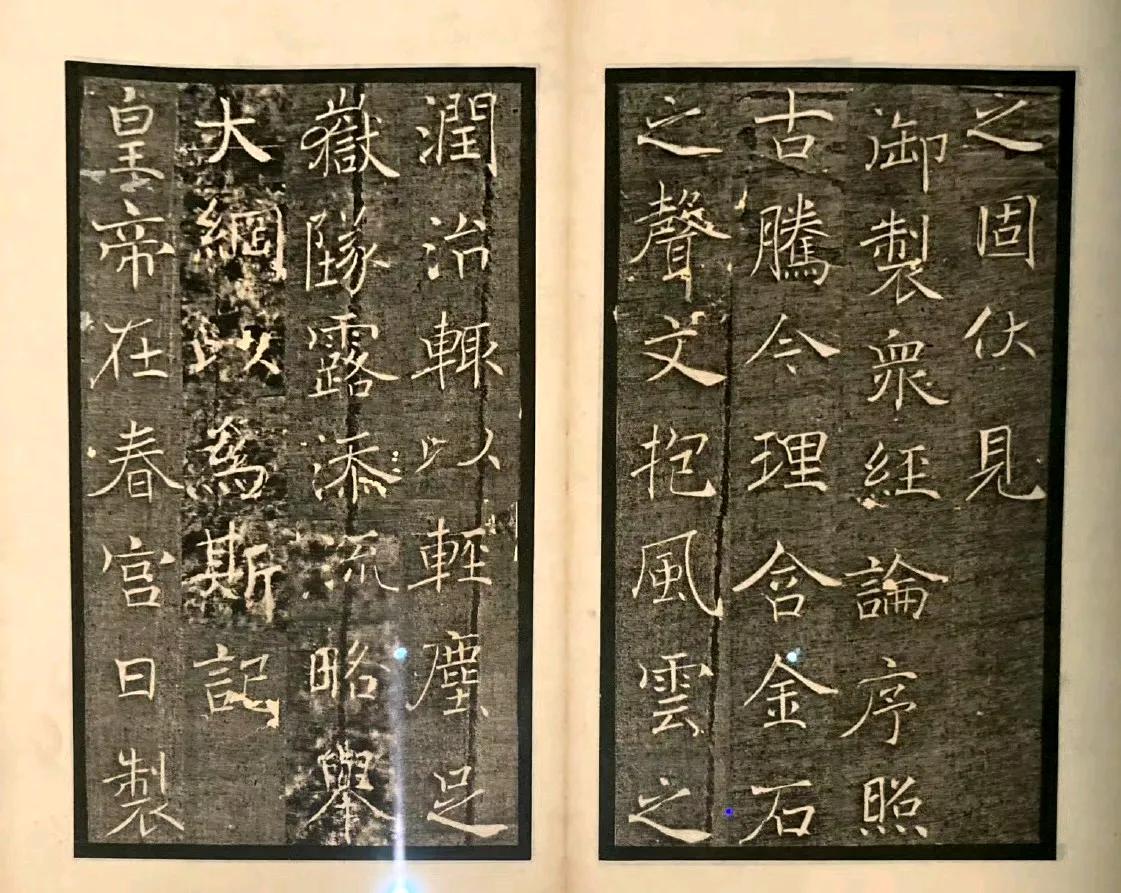 之固伏見
御製衆經論序照
古騰今理含金石
之聲文抱風雲之
潤治輙以輕塵足
嶽墜露添流略舉
大綱以爲斯記
皇帝在春宫日製